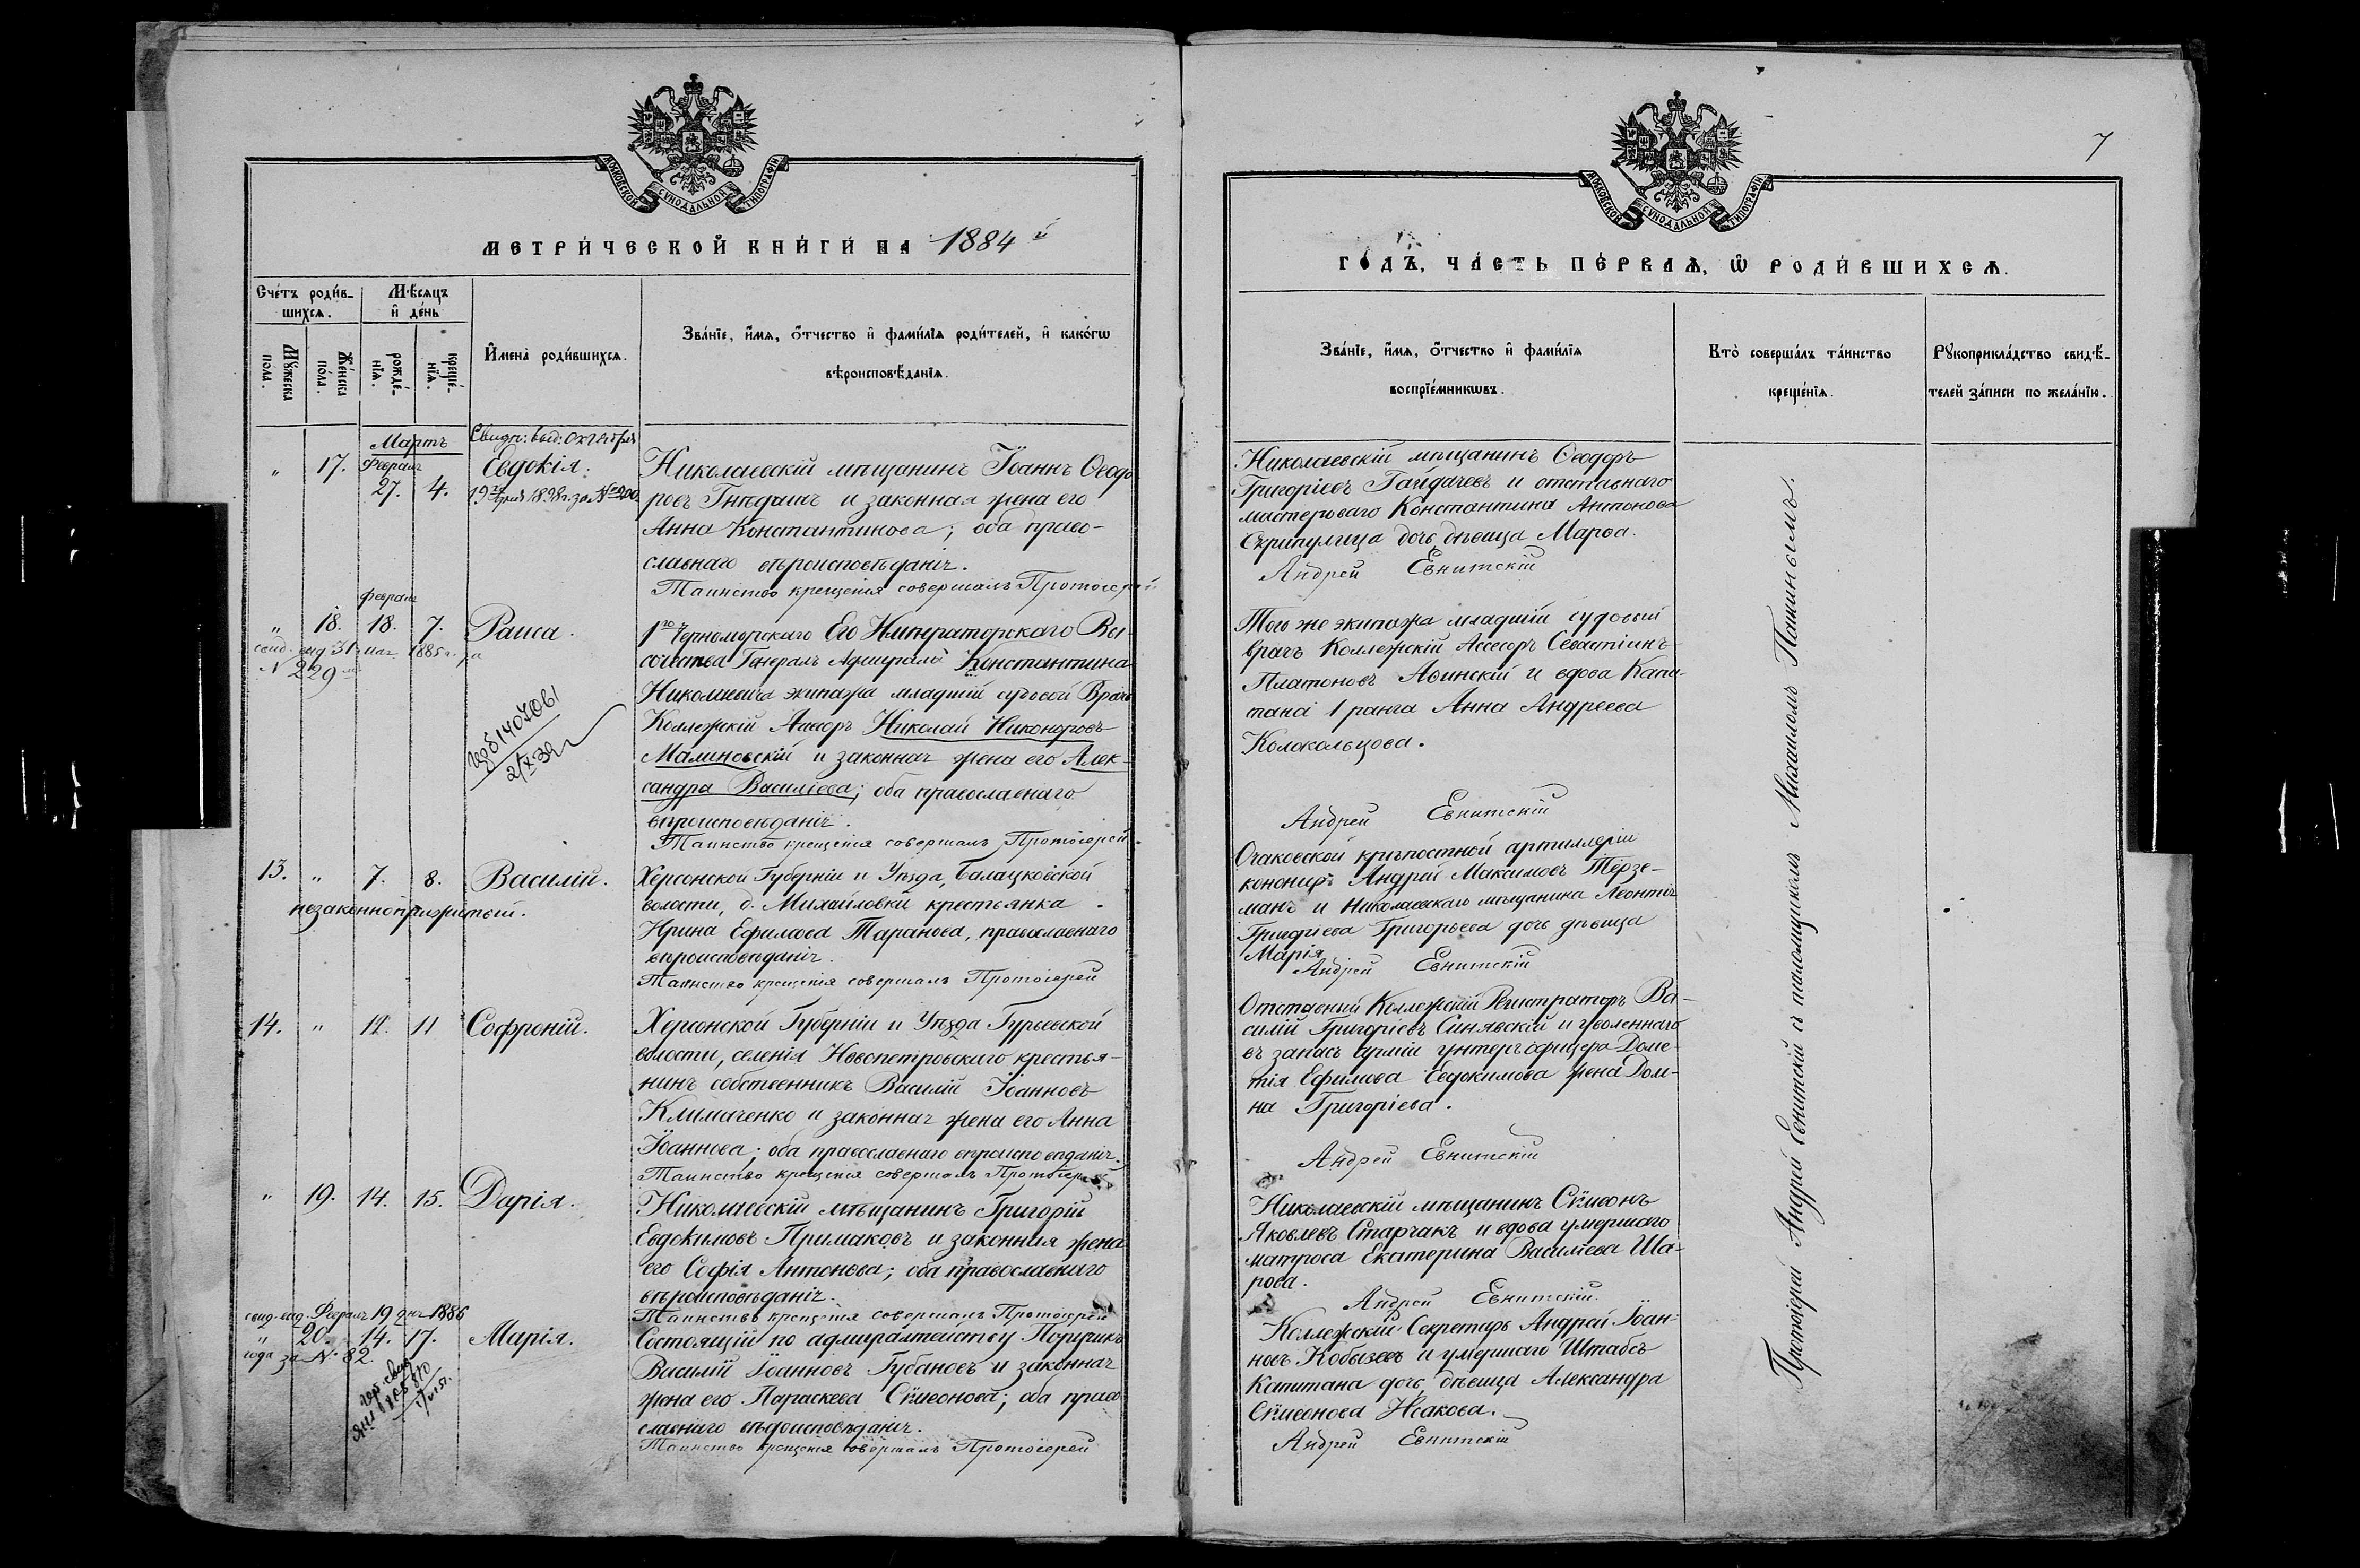 МОСКОВСКОЙ СУНОДАЛЬНОЙ ТИПОГРАФІИ
МЕТРИ́ЧЕСКОЙ КНИ́ГИ НА 1884 й
Сче́тъ роди́в-
шихсѧ.
Мѣ́сѧцъ
и҆ де́нь
Мꙋ́жеска
пола.
Же́нска
по́ла.
рожде́-
нїѧ.
креще́-
нїѧ.
И҆мена̀ роди́вшихсѧ.
Зва́нїе, и҆́мѧ, ѻ҆́тчество и҆ фами́лїѧ роди́телей, и҆ како́гѡ
вѣроисповѣ́данїѧ.
Мартъ
Свидѣт: выд: Октября
" 17. Февраля 27. 4. Евдокія.
19го дня 1898 г. за №
Николаевскій мѣщанинъ Іоаннъ Ѳеодо
ровъ Гнѣдашъ и законная жена его
Анна Константинова; оба право-
славнаго вѣроисповѣданія.
Таинство крещенія совершалъ Протоіерей
Февраля
" 18. 18. 7. Раиса.
свид. выд. 31 1885 г. за
N 229
2/X 39
1го Черноморскаго Его Императорскаго Вы-
сочества Генералъ Адмирала Константина
Николаевича экипажа младшій судовой Врачъ
Коллежскій Ассесоръ Николай Никоноровъ
Малиновскій и законная жена его Алек-
сандра Василіева; оба православнаго
вѣроисповѣданія.
Таинство крещенія совершалъ Протоіерей
13. " 7. 8. Василій.
незаконноприжитый.
Херсонской Губерніи и Уѣзда, Балацковской
волости, д. Михайловки крестьянка
Ирина Ефимова Таранова, православнаго
вѣроисповѣданія.
Таинство крещенія совершалъ Протоіерей
14. " 11. 11 Софроній.
Херсонской Губерніи и Уѣзда Гурьевской
волости, селенія Новопетровскаго крестья-
нинъ собственникъ Василій Іоанновъ
Климаченко и законная жена его Анна
Іоаннова; оба православнаго вѣроисповѣданія.
Таинство крещенія совершалъ Протоіерей
" 19. 14. 15. Дарія.
Николаевскій мѣщанинъ Григорій
Евдокимовъ Примаковъ и законная жена
его Софія Антонова; оба православнаго
вѣроисповѣданія.
Таинство крещенія совершалъ Протоіерей
свид. выд. Февраля 19 дня 1886
" 20. 14. 17. Марія.
года за N. 82.
Состоящій по адмиралтейству Поручикъ
Василій Іоанновъ Губановъ и законная
жена его Параскева Сѵмеонова; оба право
славнаго вѣроисповѣданія.
Таинство крещенія совершалъ Протоіерей
7
МОСКОВСКОЙ СУНОДАЛЬНОЙ ТИПОГРАФІИ
ГО́ДЪ, ЧА́СТЬ ПЕ́РВАѦ, Ѡ҆ РОДИ́ВШИХСѦ.
Зва́нїе, и҆́мѧ, ѻ҆́тчество и҆ фами́лїѧ
воспрїе́мникѡвъ.
Кто̀ соверша́лъ та́инство
креще́нїѧ.
Рꙋкоприкла́дство свидѣ́-
телей за́писи по жела́нїю.
Николаевскій мѣщанинъ Ѳеодоръ
Григоріевъ Гайдачевъ и отставнаго
мастероваго Константина Антонова
Скрипулица дочь дѣвица Марѳа.
Андрей Евнитскій
Того же экипажа младшій судовый
врачъ Коллежскій Ассесоръ Севастіанъ
Платоновъ Аѳинскій и вдова Капи-
тана 1 ранга Анна Андреева
Колокольцова.
Андрей Евнитскій
Очаковской крѣпостной артиллеріи
канониръ Андрей Максимовъ Терзе-
манъ и Николаевскаго мѣщанина Леонтія
Григоріева Григорьева дочь дѣвица
Марія
Андрей Евнитскій
Отставный Коллежскій Регистраторъ Ва-
силій Григоріевъ Синявскій и уволеннаго
въ запасъ арміи унтеръ офицера Доме-
тія Ефимова Евдокимова жена Дом-
на Григоріева.
Андрей Евнитскій
Николаевскій мѣщанинъ Сѵмеонъ
Яковлевъ Старчакъ и вдова умершаго
матроса Екатерина Василіева Ша-
рова.
Андрей Евнитскій.
Коллежскій Секретарь Андрей Іоан-
новъ Кобызевъ и умершаго Штабсъ
Капитана дочь, дѣвица Александра
Сѵмеонова Исакова.
Андрей Евнитскій
Протоіерей Андрей Евнитскій съ псаломщикомъ Михаиломъ Панинымъ.